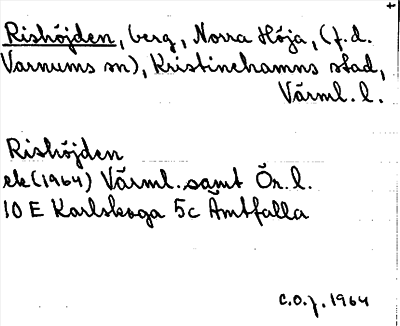 +
Rishöjden, berg, Norra Höja, (f.d.
Varnums sn), Kristinehamns stad,
Värml. l.
Rishöjden
ek (1964) Värml. samt Ör. l.
10 E Karlskoga 5c Åmtfalla
C.O.J. 1964